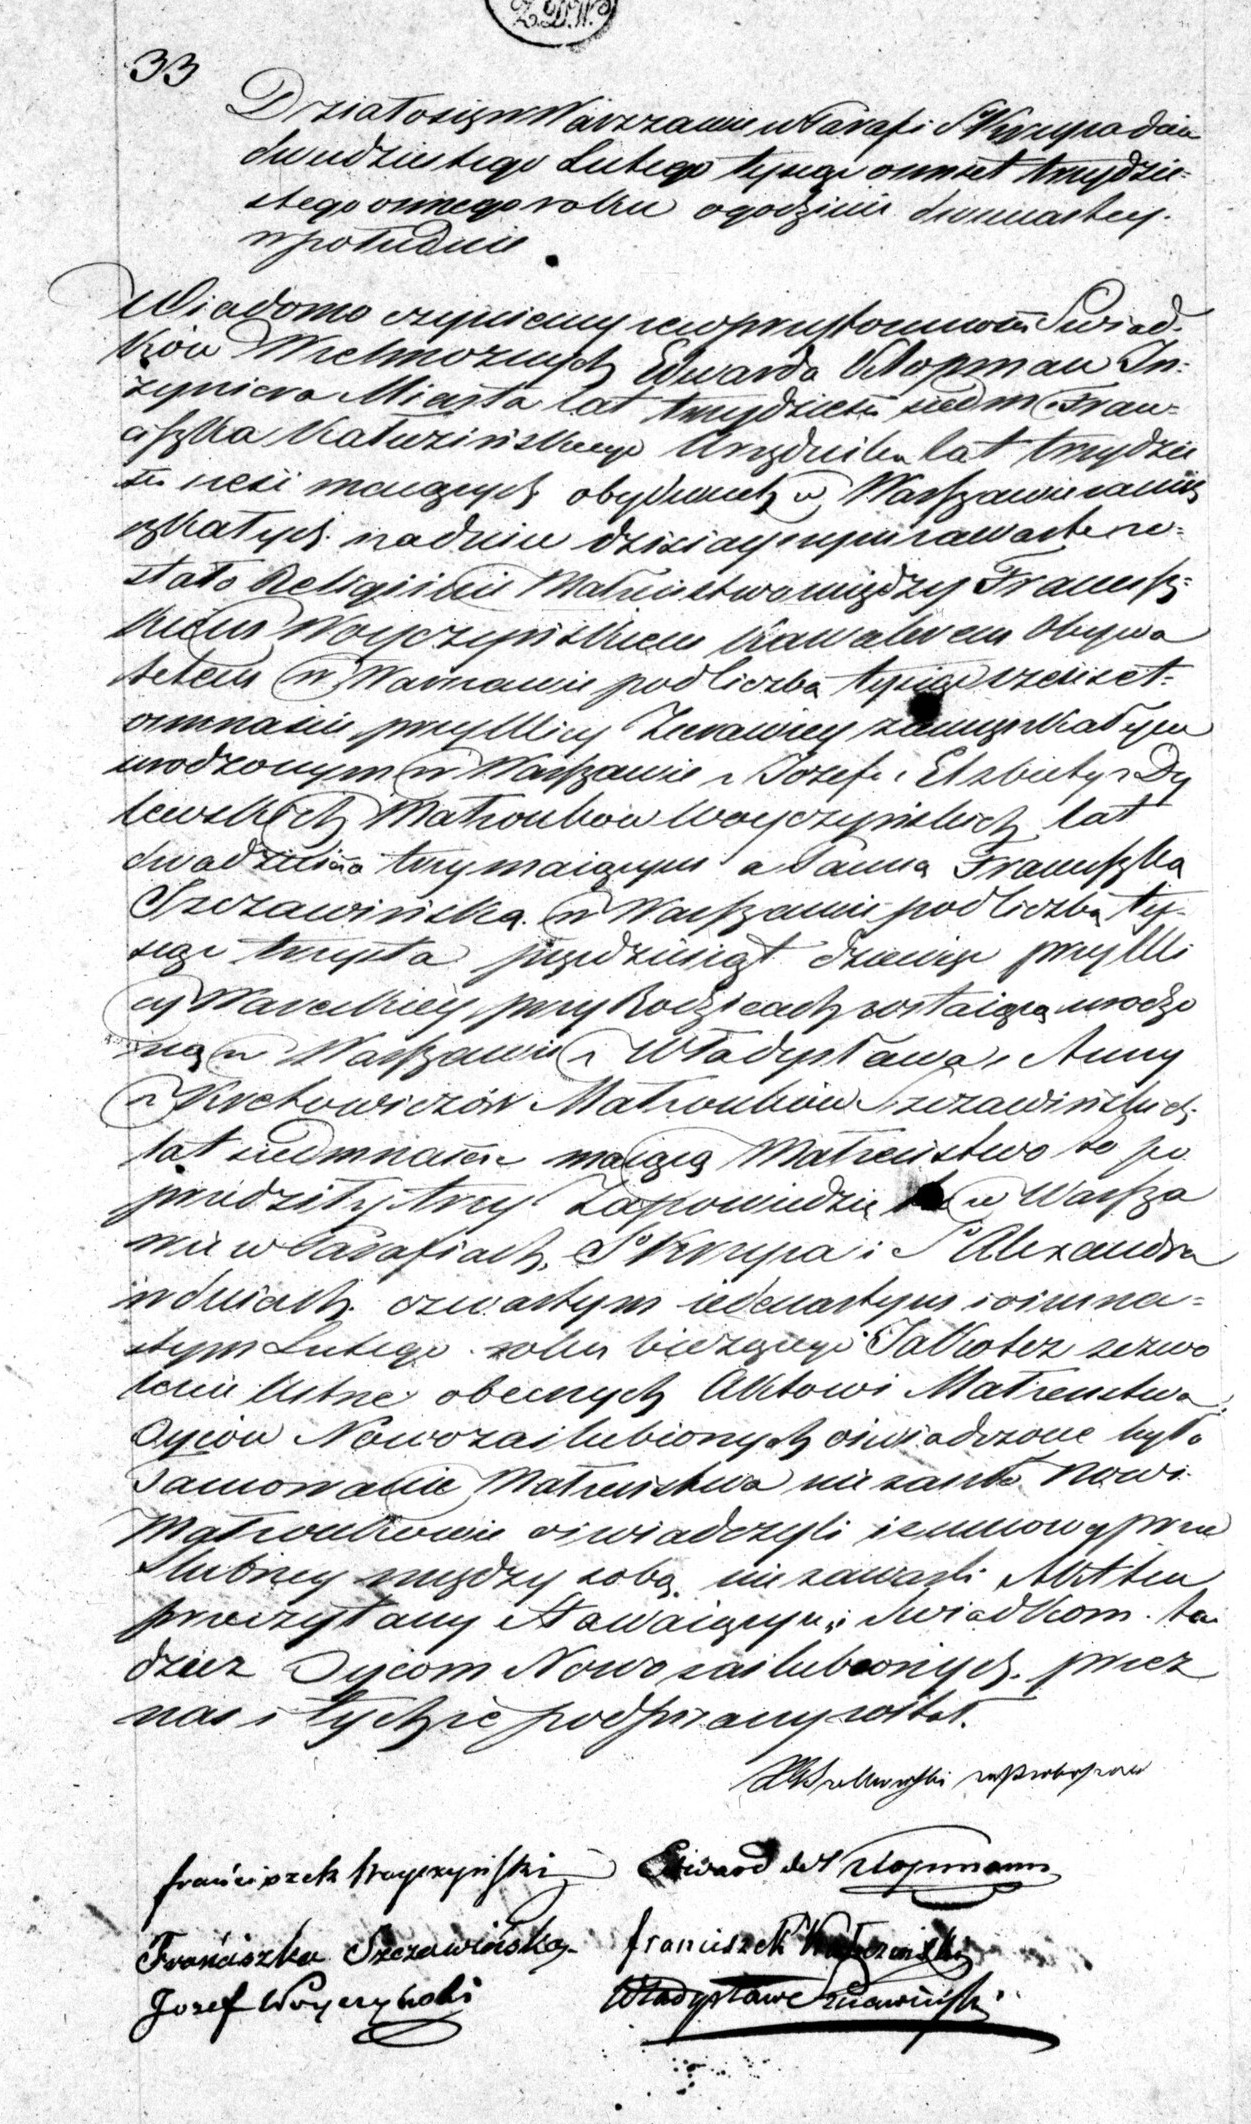 Z.D.W.
33
Działo się w Warszawie w Parafii S Krzyża dnia
dwudziestego Lutego tysiąc osmset trzydzie=
stego osmego roku o godzinie dwunastey
w południe.
Wiadomo czyniemy że w przytomności Świad=
ków Wielmożnych Edwarda Klopman In=
żyniera Miasta lat trzydzieści siedm Fran=
ciszka Kałuzińskiego Urzędnika lat trzydzie
ści sześć maiących obydwuch w Warszawie zamie
szkałych na dniu dzisieyszym zawarte zo=
stało Religiine Małżeństwo między Francisz=
kiem Woyczyńskiem Kawalerem Obywa
telem w Warszawie pod liczbą tysiąc sześćset
osmnaście przy Ulicy Żurawiey zamieszkałym
urodzonym w Warszawie z Józefa i Elżbiety z Dy
lewskich Małżonków Woyczyńskich lat
dwadzieścia trzy maiącym a Panną Franciszką
Szczawińską w Warszawie pod liczbą ty=
siąc trzysta pięćdziesiąt dziewięć przy Uli
cy Wareckiey przy Rodzicach zostaiącą urodzo
ną w Warszawie z Władysława i Anny
z Krchowiczów Małżonków Szczawińskich
lat siedmnaście maiącą Małżeństwo to po
przedziły trzy Zapowiedzie w Warsza
wie w Parafiach S Krzyża i S Alexandra
w dniach czwartym iedenastym i osmna=
stym Lutego roku bieżącego Jakoteż zezwo
lenie Ustne obecnych Aktowi Małżeństwa
Oyców Nowozaślubionych oświadczone było
Tamowanie Małżeństwa nie zaszło Nowi
Małżonkowie oświadczyli iż umowy przed
Ślubney między sobą nie zawarli Akt ten
przeczytany Stawaiącym i Świadkom tu
dzież Oycom Nowo zaślubionych przez
nas i tychże podpisany został.
Franciszek Woyczyński Edward de Klopmann
Franciszka Szczawińska Franciszek Kałuziński
Jozef Woyczynski Władysław Szczawiński